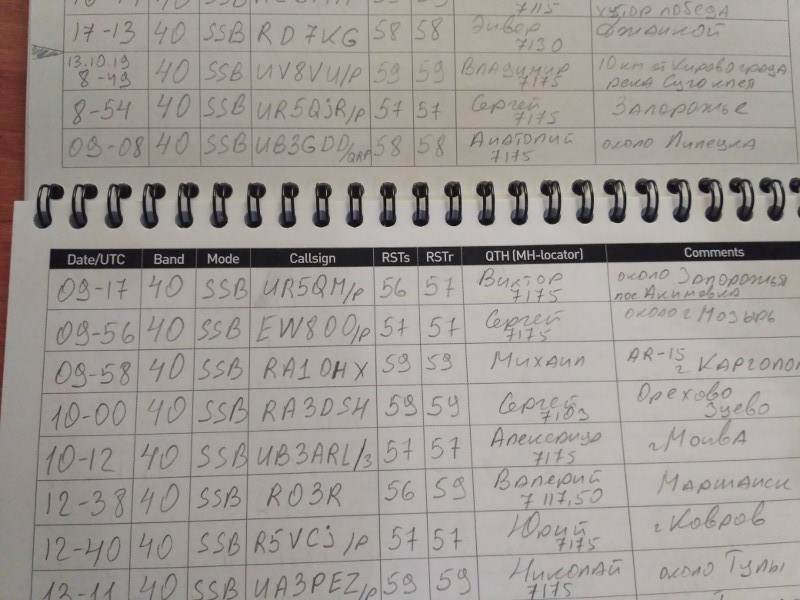 7115 хутор победа
17-13 40 SSB RD7KG 58 58 Энвер 7130 Джанкой
13.10.19 8-49 40 SSB UV8VU/P 59 59 Владимир 7175 10 км от Кировограда река Сугоклея
8-54 40 SSB UR5QJR/P 57 57 Сергей 7175 Запорожье
09-08 40 SSB UB3GDD/QRP 58 58 Анатолий 7175 около Липецка
Date/UTC Band Mode Callsign RSTs RSTr QTH (MH-locator) Comments
09-17 40 SSB UR5QM/P 56 57 Виктор 7175 около Запорожья пос Акимовка
09-56 40 SSB EW8OO/P 57 57 Сергей 7175 около г Мозырь
09-58 40 SSB RA1OHX 59 59 Михаил AR-15 г Каргопол
10-00 40 SSB RA3DSH 59 59 Сергей 7183 Орехово Зуево
10-12 40 SSB UB3ARL/3 57 57 Александр 7175 г Москва
12-38 40 SSB RO3R 56 59 Валерий 7117,50 Маршанск
12-40 40 SSB R5VCJ/P 57 57 Юрий 7175 г Ковров
13-11 40 SSB UA3PEZ/P 59 59 Николай 7175 около Тулы